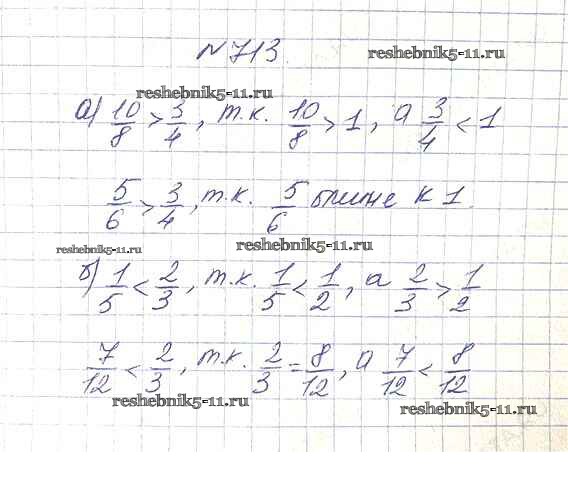 №713.
reshebnik5-11.ru
reshebnik5-11.ru
а) 10/8 > 3/4, т.к. 10/8 > 1, а 3/4 < 1
5/6 > 3/4, т.к. 5/6 ближе к 1.
reshebnik5-11.ru
reshebnik5-11.ru
б) 1/5 < 2/3, т.к. 1/5 < 1/2, а 2/3 > 1/2
7/12 < 2/3, т.к. 2/3 = 8/12, а 7/12 < 8/12
reshebnik5-11.ru
reshebnik5-11.ru